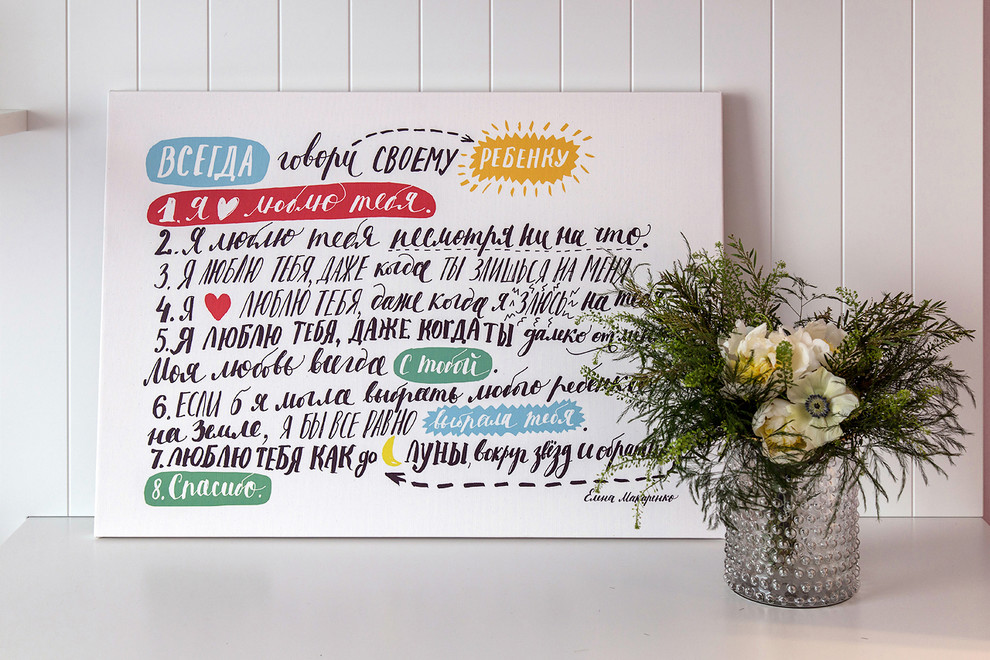 ВСЕГДА говори СВОЕМУ РЕБЕНКУ
1. Я люблю тебя.
2. Я люблю тебя несмотря ни на что.
3. Я ЛЮБЛЮ ТЕБЯ, ДАЖЕ когда ТЫ ЗЛИШЬСЯ НА МЕНЯ
4. Я ЛЮБЛЮ ТЕБЯ, даже когда я ЗЛЮСЬ на
5. Я ЛЮБЛЮ ТЕБЯ, ДАЖЕ КОГДА ТЫ далеко от
Моя любовь всегда с тобой.
6. ЕСЛИ б я могла выбрать любого
на Земле, Я БЫ ВСЕ РАВНО выбрала тебя.
7. ЛЮБЛЮ ТЕБЯ КАК до ЛУНЫ, вокруг звёзд и
8. Спасибо.
Елена Макаренко